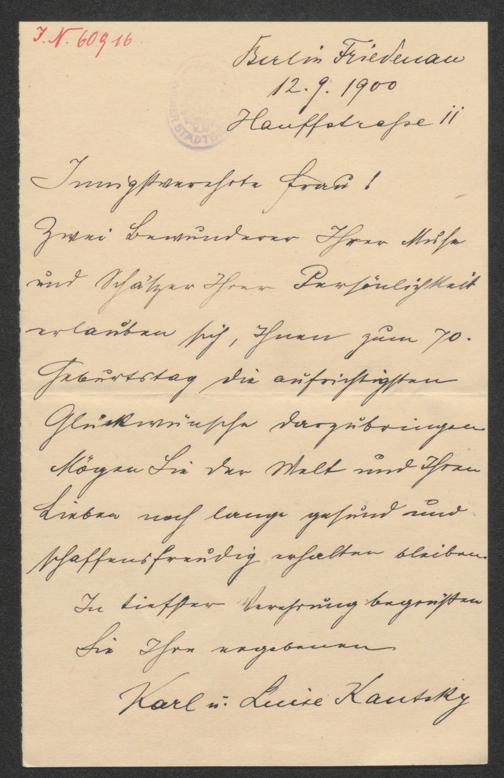 I. N. 60916
Berlin Friedenau
12. 9. 1900
Hauffstraße 11
Innigstverehrte Frau!
Zwei Bewunderer Ihrer Muse
und Schätzer Ihrer Persönlichkeit
erlauben sich, Ihnen zum 70.
Geburtstag die aufrichtigsten
Glückwünsche darzubringen
Mögen Sie der Welt und Ihren
Lieben noch lange gesund und
schaffensfreudig erhalten bleiben.
In tiefster Verehrung begrüßen
Sie Ihre ergebenen
Karl u. Luise Kautsky